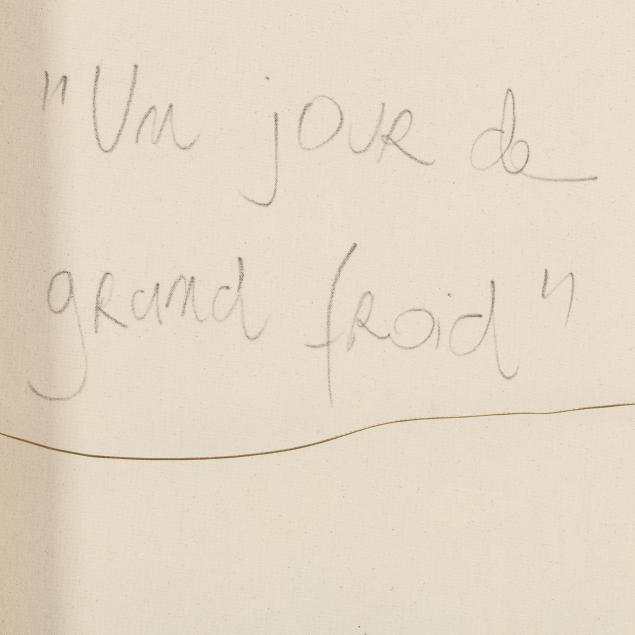 "Un jour de
grand froid"